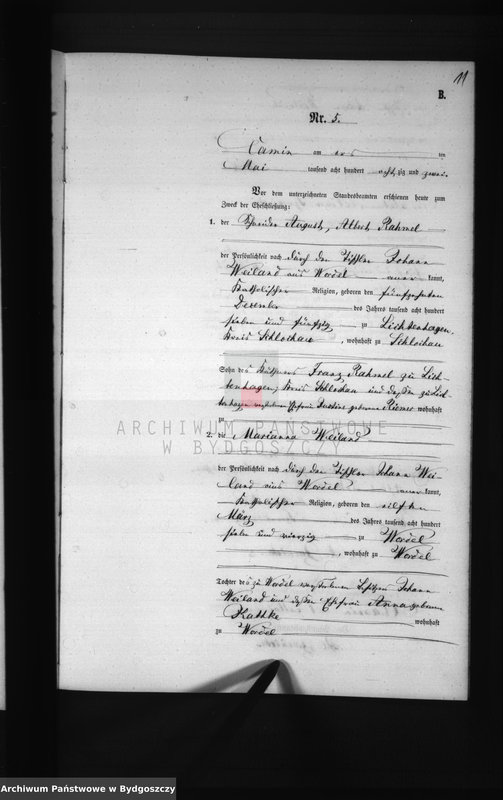 11
B.
Nr. 5.
Camin am ten
Mai tausend acht hundert acht zig und zwei.
Vor dem unterzeichneten Standesbeamten erschienen heute zum
Zweck der Eheschließung:
1. der Schneider August, Albert Rahmel
der Persönlichkeit nach durch den Tischler Johann
Weiland aus Wordel aner kannt,
katholischer Religion, geboren den fünfzehnten
Dezember des Jahres tausend acht hundert
sieben und fünfzig zu Lichtenhagen,
Kreis Schlochau, wohnhaft zu Schlochau
Sohn des Franz Rahmel zu Lich-
tenhagen, Kreis Schlochau und dessen zu Lich-
tenhagen verstorbenen Ehefrau geborene Riemer wohnhaft
zu
ARCHIWUM PAŃSTWOWE
W BYDGOSZCZY
2. die Marianna Weiland
der Persönlichkeit nach durch den Tischler Johann Wei-
land aus Wordel aner kannt,
katholischer Religion, geboren den eilften
März des Jahres tausend acht hundert
sieben und vierzig zu Wordel
, wohnhaft zu Wordel
Tochter des zu Wordel verstorbenen Johann
Weiland und dessen Ehefrau Anna geborenen
Rathke wohnhaft
zu Wordel
Archiwum Państwowe w Bydgoszczy